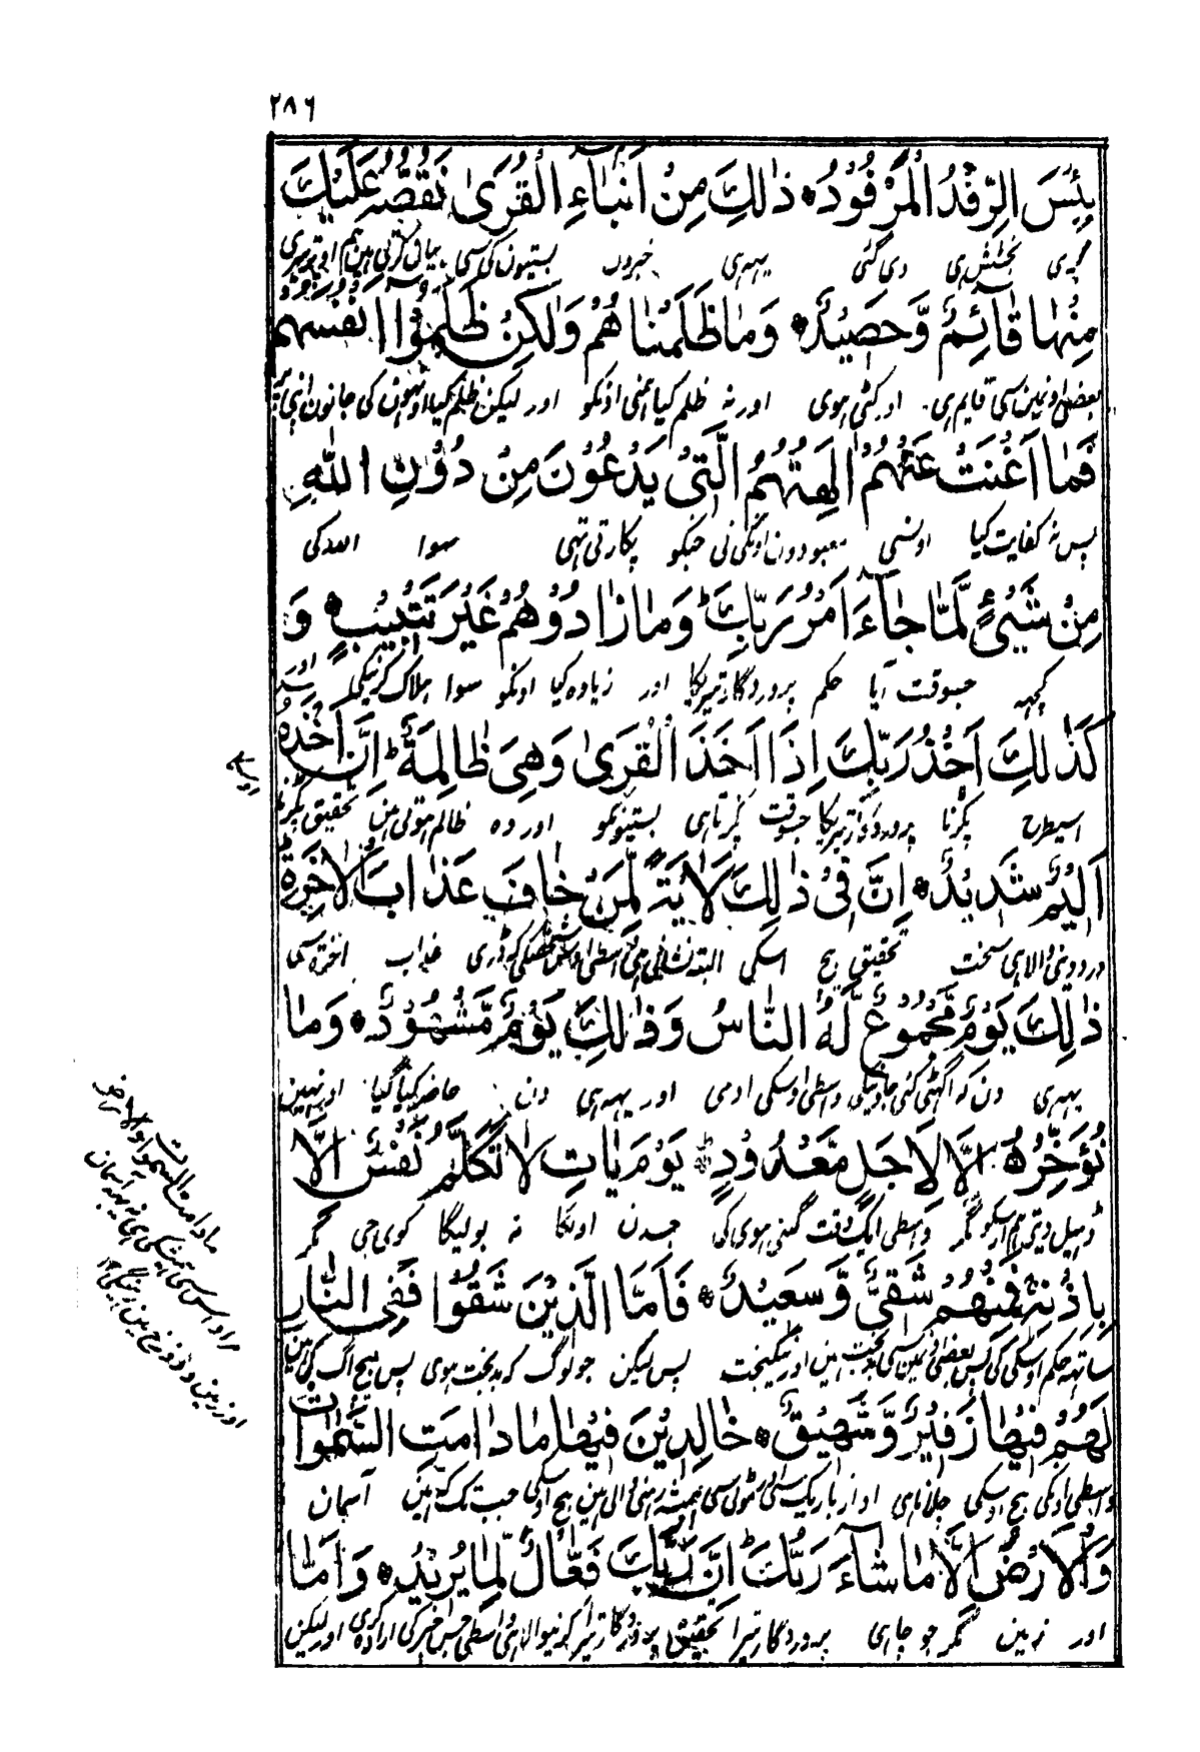 ۲۸۶
بِئْسَ الرِّفْدُ الْمَرْفُوْدُ ذٰلِكَ مِنْ اَنْبَآءِ الْقُرٰى نَقُصُّهٗ عَلَيْكَ
بری بخشش ہی دی گئی یہہ ہی خبروں بستیون کی سی بیان کرتی ہین ہم اوپر تیری
مِنْهَا قَآئِمٌ وَّحَصِيْدٌ وَمَا ظَلَمْنَاهُمْ وَلٰكِنْ ظَلَمُوْا اَنْفُسَهُمْ
بعضی اونمین سی قایم ہی اور کٹی ہوی اور نہ ظلم کیا ہمنی اونکو اور لیکن ظلم کیا اونہون کی جانون اپنی پر
فَمَا اَغْنَتْ عَنْهُمْ اٰلِهَتُهُمُ الَّتِىْ يَدْعُوْنَ مِنْ دُوْنِ اللّٰهِ
پس نہ کفایت کیا اونسی معبودون اونکی نی جنکو پکارتی تہی سوا اللہ کی
مِنْ شَىْءٍ لَّمَّا جَآءَ اَمْرُ رَبِّكَ وَمَا زَادُوْهُمْ غَيْرَ تَتْبِيْبٍ وَ
کچہہ جسوقت آیا حکم پروردگار تیریکا اور زیادہ کیا اونکو سوا ہلاک کرنیکی اور
كَذٰلِكَ اَخْذُ رَبِّكَ اِذَا اَخَذَ الْقُرٰى وَهِىَ ظَالِمَةٌ اِنَّ اَخْذَهٗ
اسیطرح پکڑنا پروردگار تیریکا جسوقت پکڑتا ہی بستیونکو اور وہ ظالم ہوتی ہین تحقیق پکڑنا
اوسکا
اَلِيْمٌ شَدِيْدٌ اِنَّ فِىْ ذٰلِكَ لَاٰيَةً لِّمَنْ خَافَ عَذَابَ الْاٰخِرَةِ
درد دینی والا ہی سخت تحقیق بیچ اسکی البتہ نشانی ہی واسطی اوس شخص کی کہ ڈری عذاب اخرت سی
ذٰلِكَ يَوْمٌ مَّجْمُوْعٌ لَّهُ النَّاسُ وَذٰلِكَ يَوْمٌ مَّشْهُوْدٌ وَمَا
یہہ ہی دن کہ اکہٹی کئی جاوینگی واسطی اوسکی ادمی اور یہہ ہی دن حاضر کیا گیا اور نہین
نُؤَخِّرُهٗ اِلَّا لِاَجَلٍ مَّعْدُوْدٍ يَوْمَ يَاْتِ لَا تَكَلَّمُ نَفْسٌ اِلَّا
ڈہیل دیتی ہم اسکو مگر واسطی ایک وقت گنی ہوی کی جسدن اویگا نہ بولیگا کوی جی مگر
بِاِذْنِهٖ فَمِنْهُمْ شَقِىٌّ وَّسَعِيْدٌ فَاَمَّا الَّذِيْنَ شَقُوْا فَفِى النَّارِ
ساتہہ حکم اوسکی کی پس بعضی اونمین سی بدبخت ہین اور نیکبخت پس لیکن جو لوگ کہ بدبخت ہوی پس بیچ اگ کی ہین
لَهُمْ فِيْهَا زَفِيْرٌ وَّشَهِيْقٌ خَالِدِيْنَ فِيْهَا مَا دَامَتِ السَّمٰوَاتُ
واسطی اونکی بیچ اوسکی چلانا ہی اواز باریک سی ہمیشہ رہنی والی ہین بیچ اوسکی جب تک کہ ہین آسمان
وَالْاَرْضُ اِلَّا مَا شَآءَ رَبُّكَ اِنَّ رَبَّكَ فَعَّالٌ لِّمَا يُرِيْدُ وَاَمَّا
اور زمین مگر جو چاہی پروردگار تیرا تحقیق پروردگار تیرا کرنیوالا ہی واسطی جس چیز کی ارادہ کری اور لیکن
مادامت السموات والارض
مراد اس سی ہمیشکی ہی نہ یہہ آسمان
اور زمین